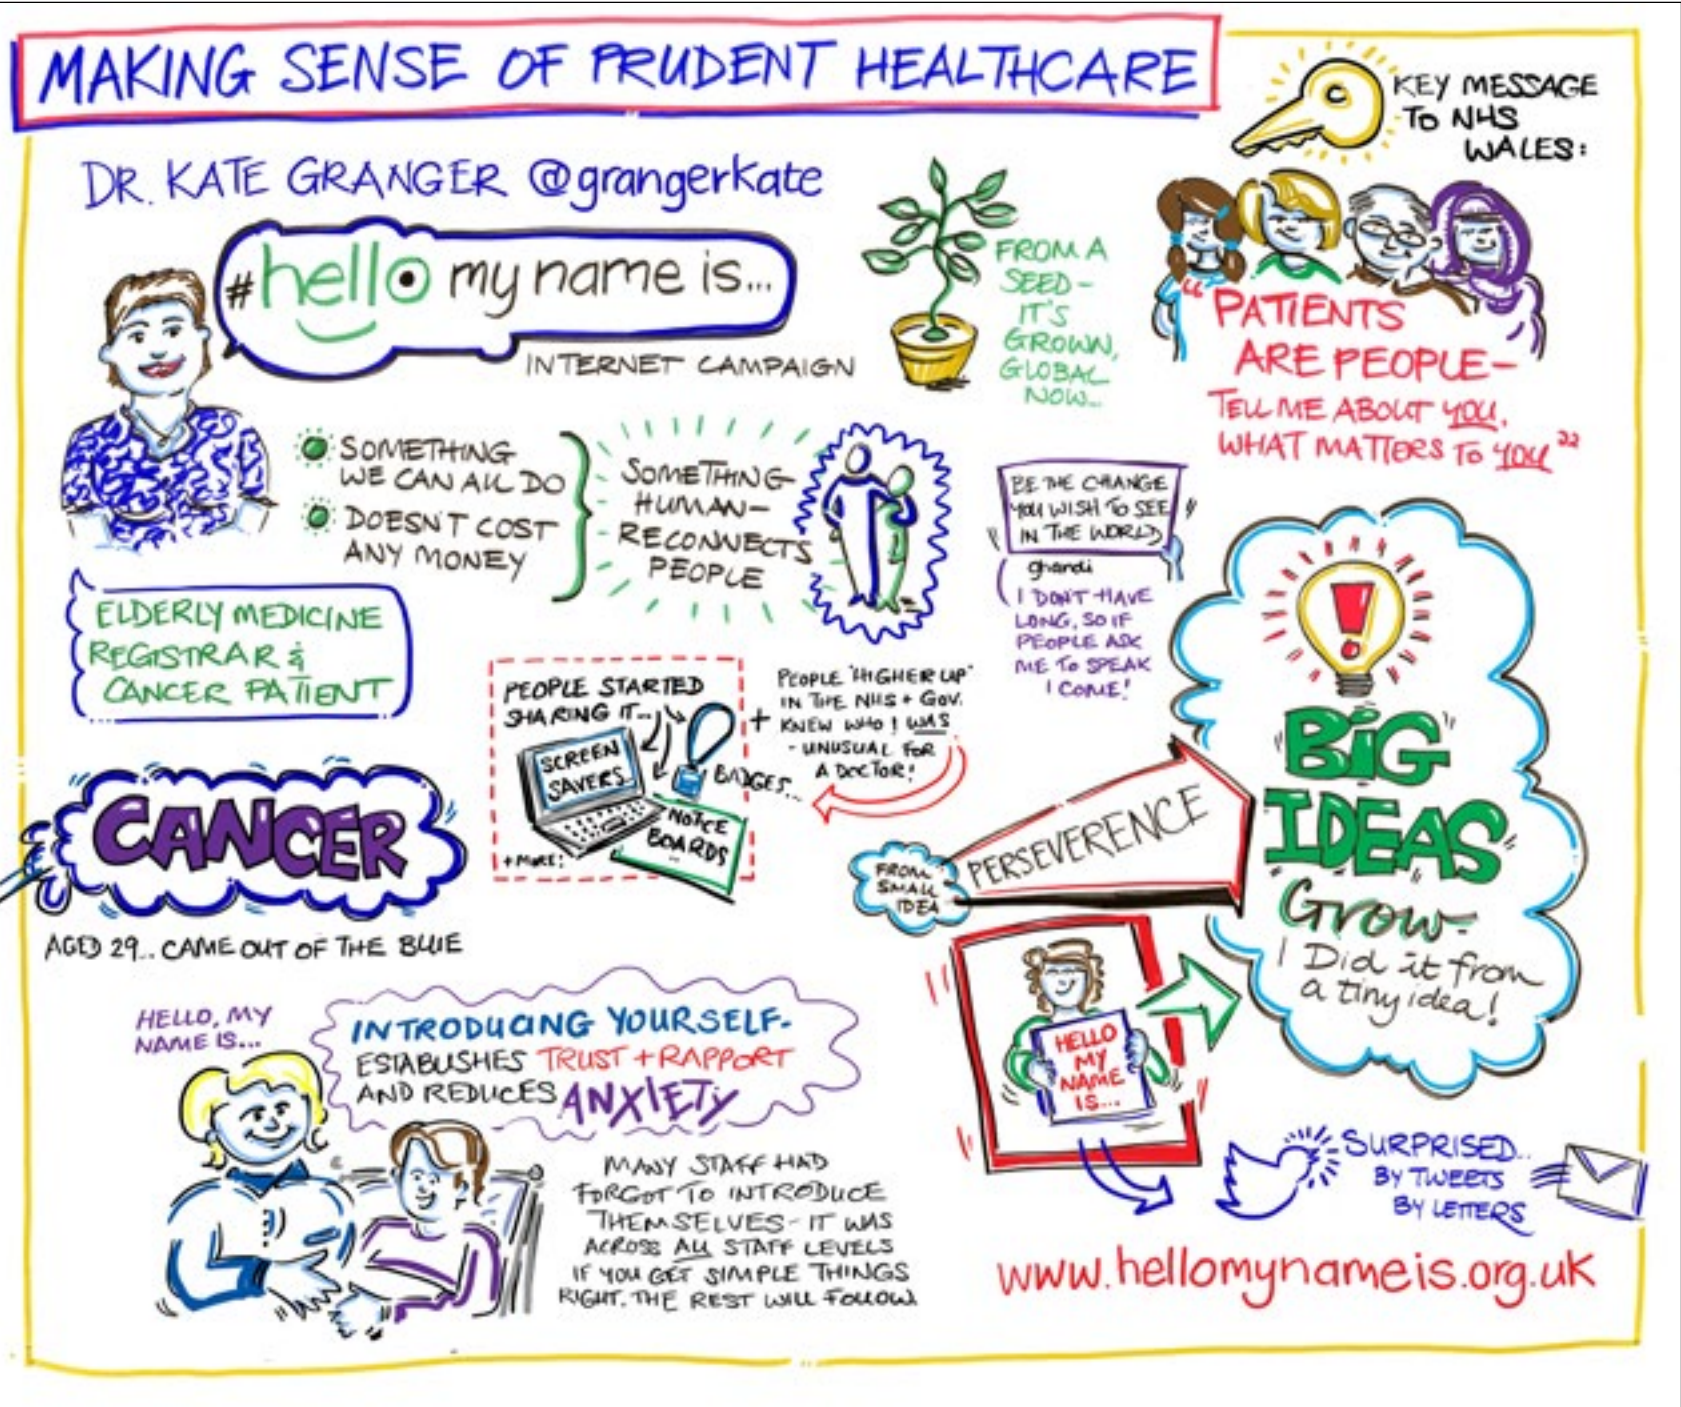 MAKING SENSE OF PRUDENT HEALTHCARE
DR. KATE GRANGER @grangerkate
#hello my name is...
INTERNET CAMPAIGN
FROM A
SEED-
IT'S
GROWN,
GLOBAL
NOW...
KEY MESSAGE
TO NHS
WALES:
"PATIENTS
ARE PEOPLE-
TELL ME ABOUT YOU,
WHAT MATTERS TO YOU"
SOMETHING
WE CAN ALL DO
DOESN'T COST
ANY MONEY
SOMETHING
HUMAN-
RECONNECTS
PEOPLE
BE THE CHANGE
YOU WISH TO SEE
IN THE WORLD
ghandi
I DON'T HAVE
LONG, SO IF
PEOPLE ASK
ME TO SPEAK
I COME!
ELDERLY MEDICINE
REGISTRAR &
CANCER PATIENT
PEOPLE STARTED
SHARING IT...
SCREEN
SAVERS
BADGES...
NOTICE
BOARDS
..
+ MORE!
+
PEOPLE "HIGHER UP"
IN THE NHS + GOV.
KNEW WHO I WAS
- UNUSUAL FOR
A DOCTOR!
CANCER
AGED 29... CAME OUT OF THE BLUE
FROM
SMALL
IDEA
PERSEVERENCE
BIG
IDEAS
Grow-
I Did it from
a tiny idea!
HELLO, MY
NAME IS...
INTRODUCING YOURSELF-
ESTABLISHES TRUST + RAPPORT
AND REDUCES ANXIETY
MANY STAFF HAD
FORGOT TO INTRODUCE
THEMSELVES - IT WAS
ACROSS ALL STAFF LEVELS
IF YOU GET SIMPLE THINGS
RIGHT. THE REST WILL FOLLOW.
HELLO
MY
NAME
IS...
SURPRISED...
BY TWEETS
BY LETTERS
www.hellomynameis.org.uk